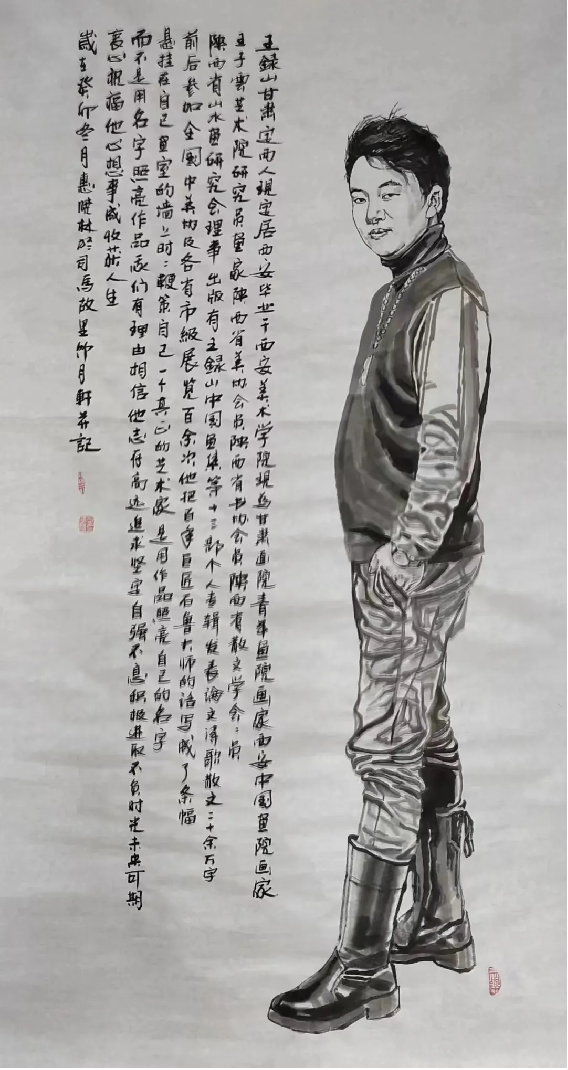 王録山甘肃定西人現定居西安毕业于西安美术学院現為甘肃画院青年画院画家西安中國画院画家
王子雲艺术院研究员画家陕西省美协会员陕西省书协会员陕西省散文学会会员
陕西省山水画研究会理事出版有王録山中國画集等十三部个人专辑发表論文诗歌散文二十余万字
前后参加全國中美协及各省市級展览百余次他把百年巨匠石鲁大师的话写成了条幅
悬挂在自己画室的墙上时时鞭策自己一个真正的艺术家是用作品照亮自己的名字
而不是用名字照亮作品我们有理由相信他志存高远追求坚定自强不息积极進取不負时光未来可期
衷心祝福他心想事成收获人生
歲在癸卯冬月惠晓林於司馬故里仰月軒并記